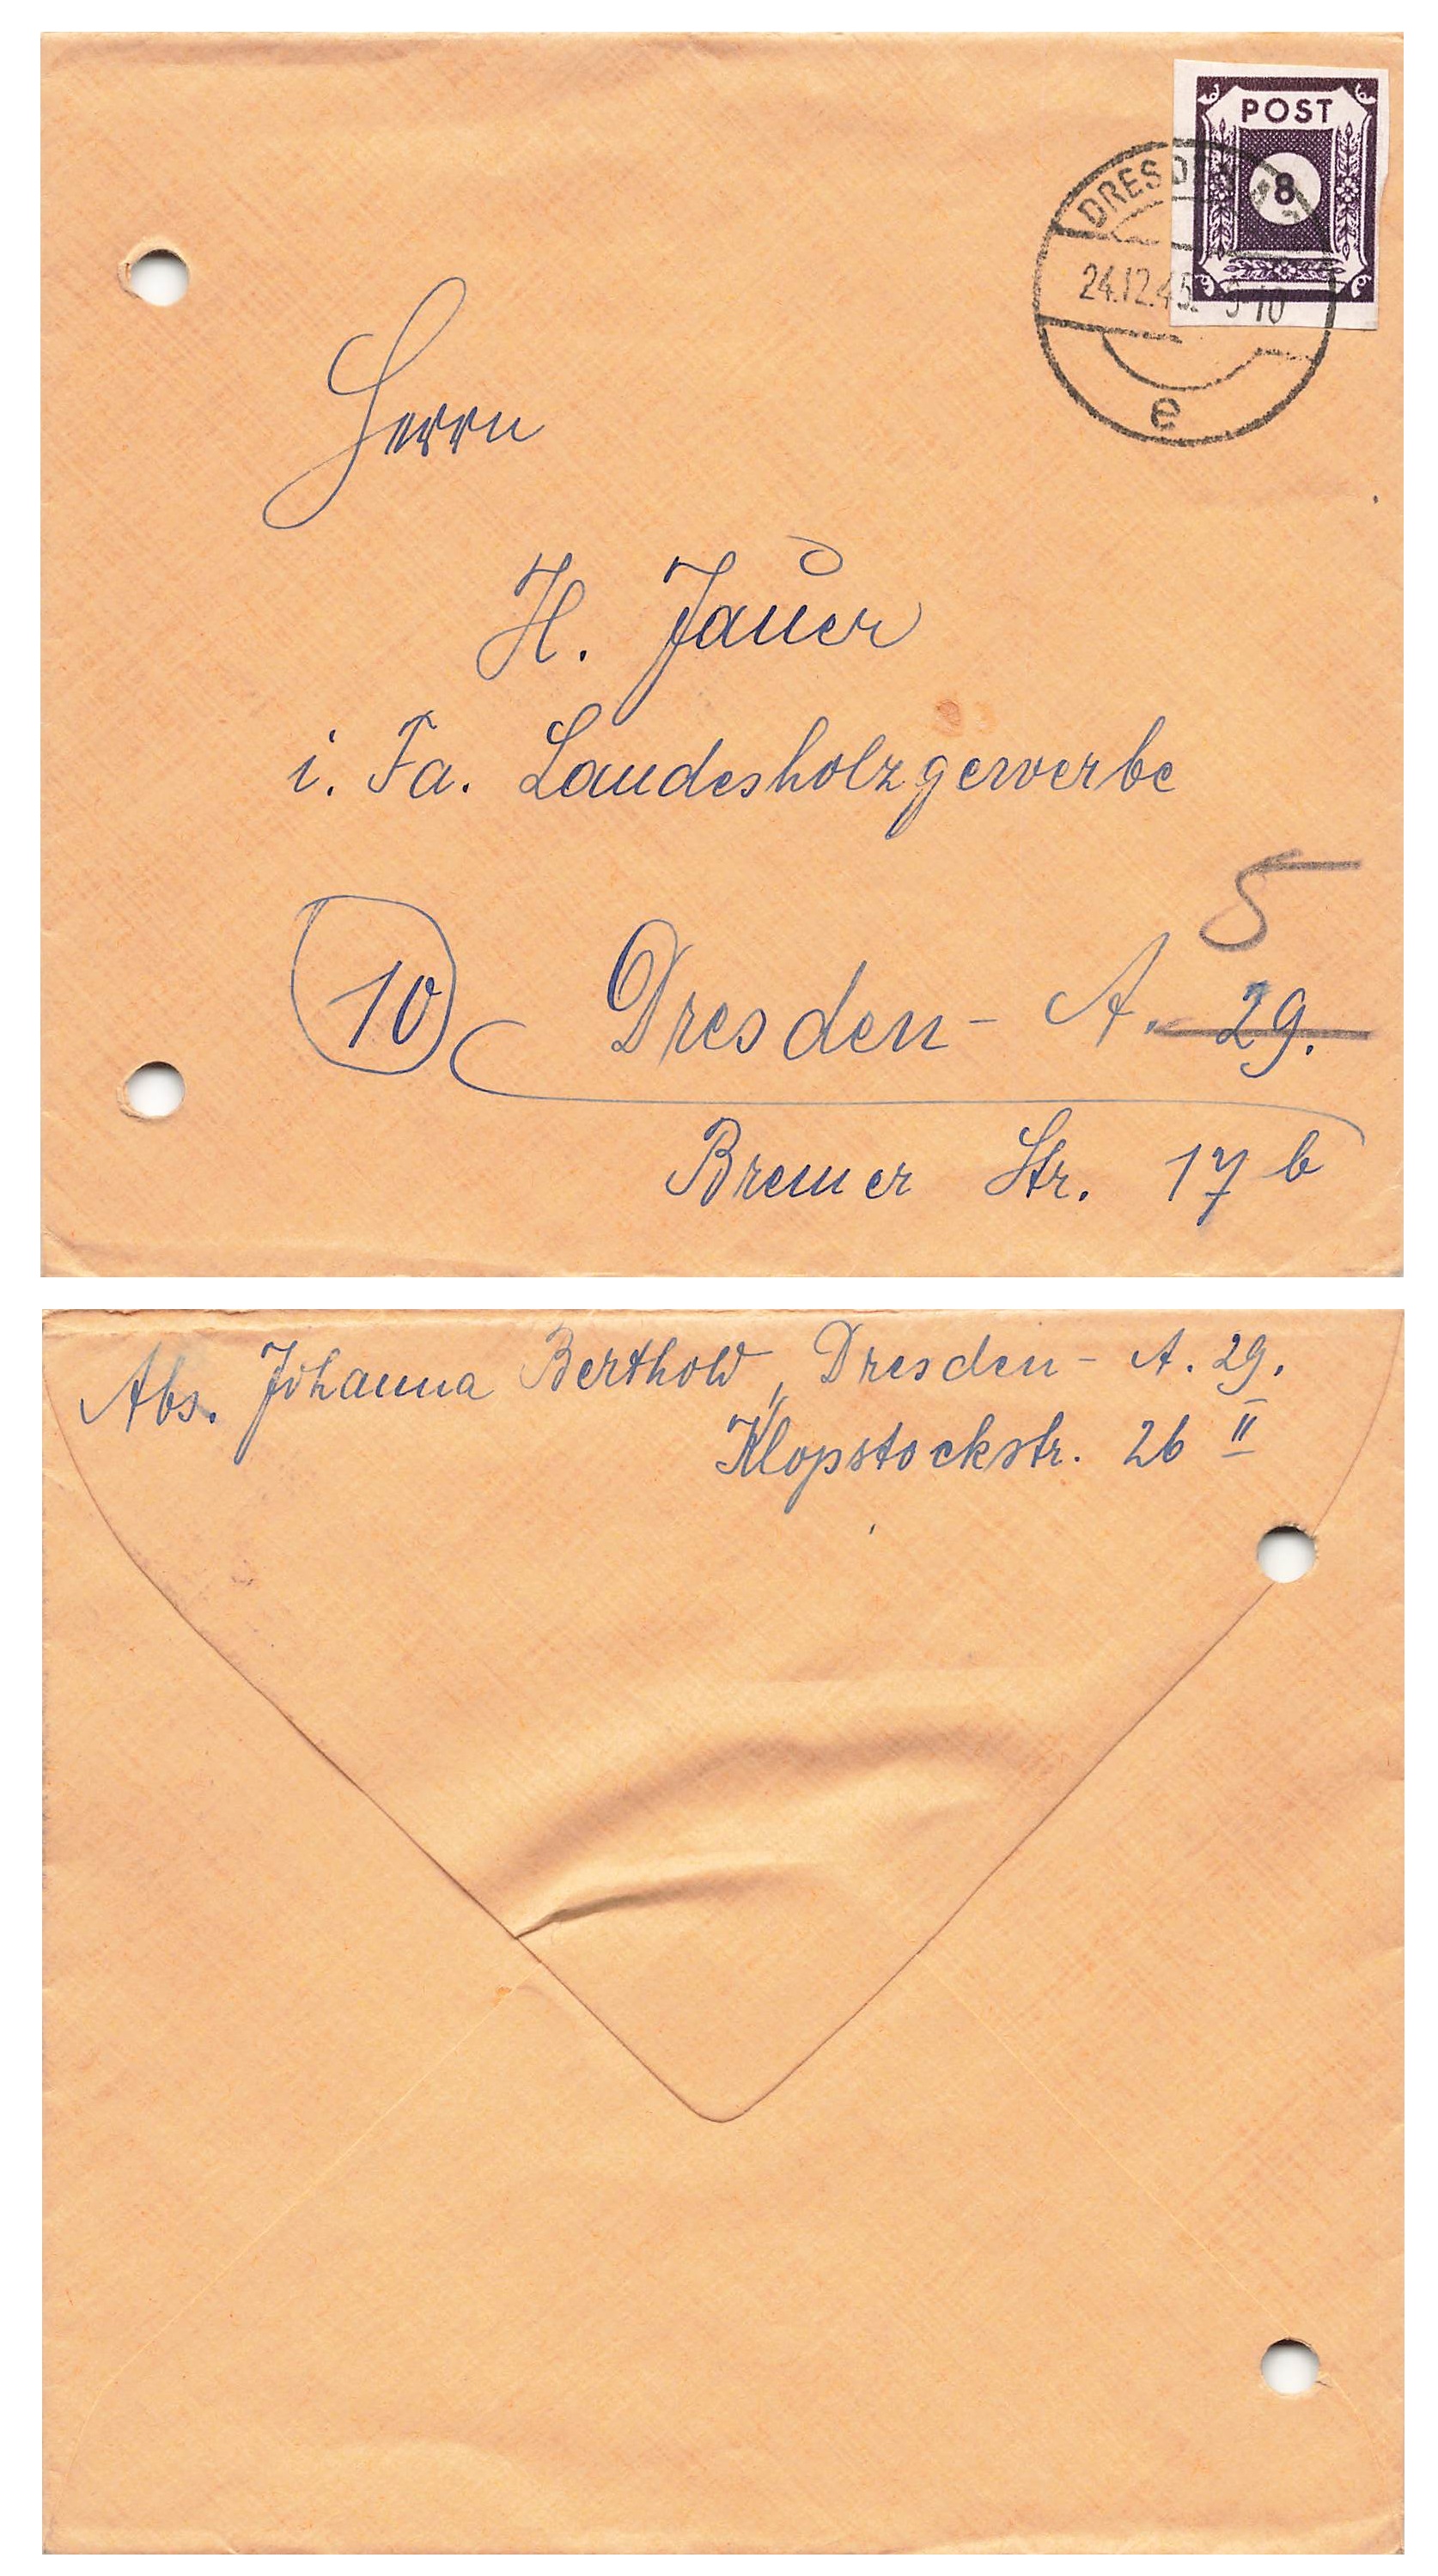 POST
8
DRESDEN
24.12.45. 9-10
e
Herrn
H. Jauer
i. Fa. Landesholzgewerbe
5
10 Dresden - A. 29.
Bremer Str. 17 b
Abs. Johanna Berthold, Dresden - A. 29.
Klopstockstr. 26 II